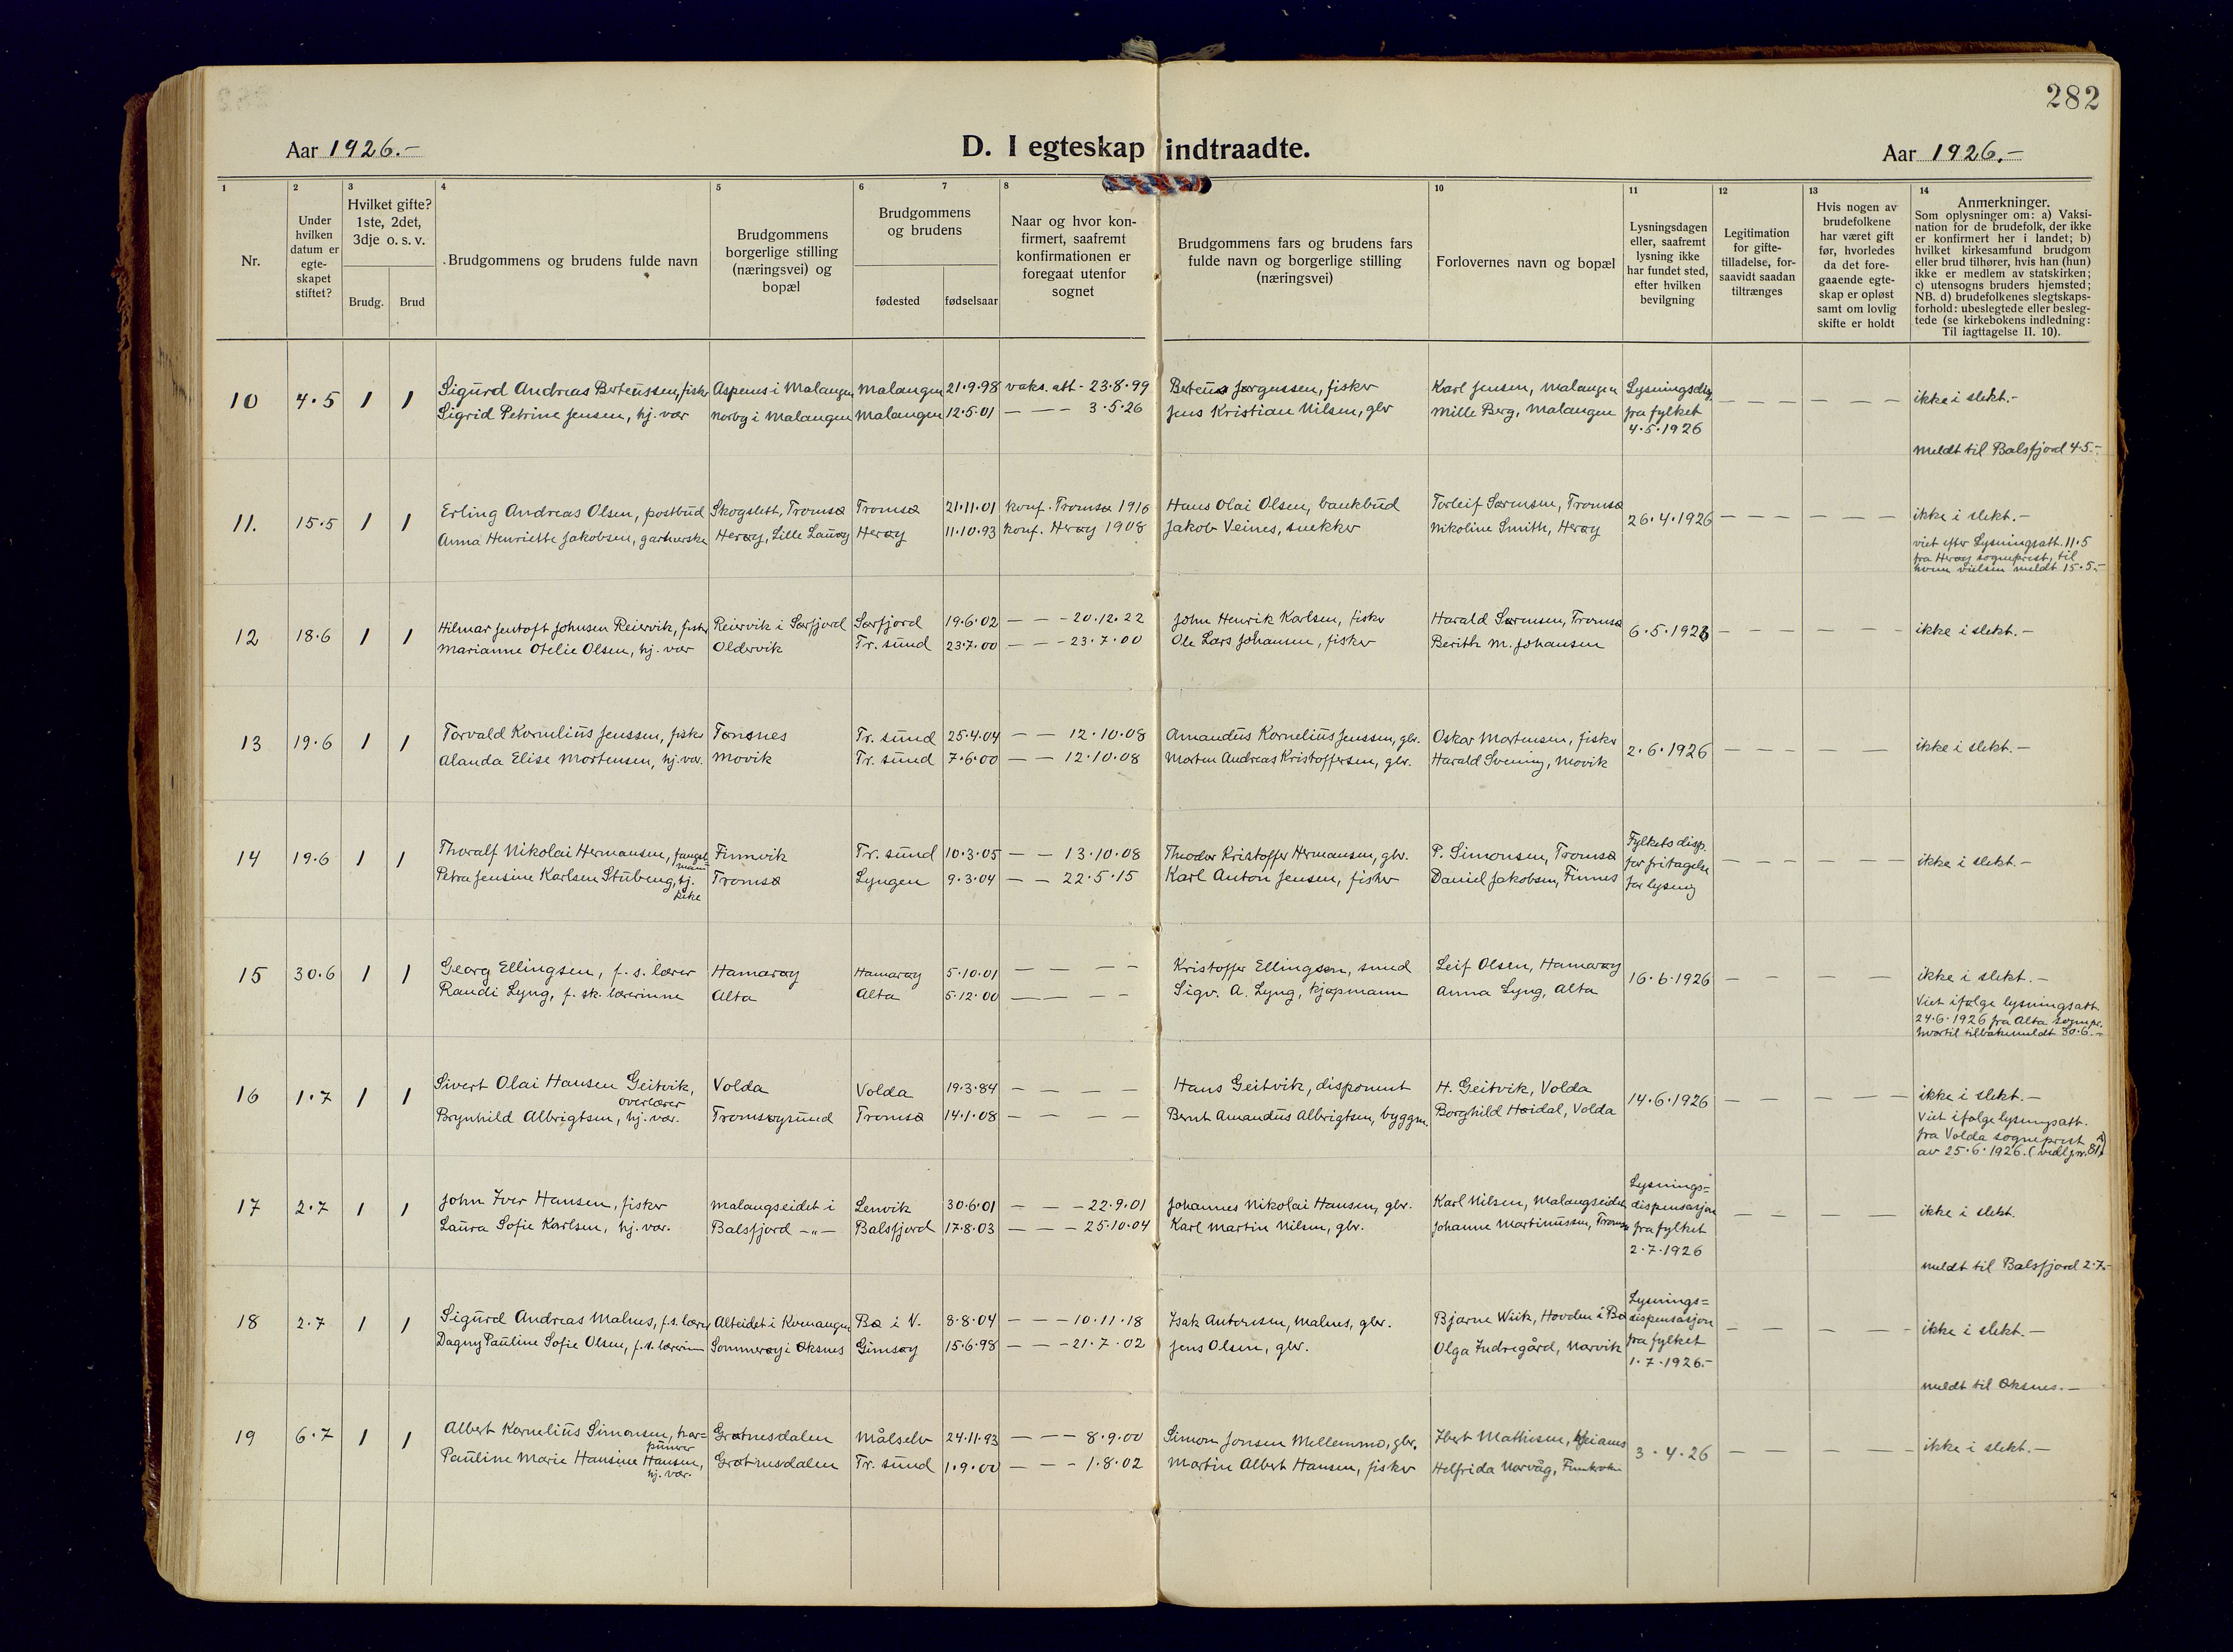 282
Aar 1926.-
D. I egteskap indtraadte.
Aar 1926.-
1
2
3
4
5
6
7
8
10
11
12
13
14
Nr.
Under
hvilken
datum er
egte-
skapet
stiftet?
Hvilket gifte?
1ste, 2det,
3dje o. s. v.
Brudg.
Brud
Brudgommens og brudens fulde navn
Brudgommens
borgerlige stilling
(næringsvei) og
bopæl
Brudgommens
og brudens
fødested
fødselsaar
Naar og hvor kon-
firmert, saafremt
konfirmationen er
foregaat utenfor
sognet
Brudgommens fars og brudens fars
fulde navn og borgerlige stilling
(næringsvei)
Forlovernes navn og bopæl
Lysningsdagen
eller, saafremt
lysning ikke
har fundet sted,
efter hvilken
bevilgning
Legitimation
for gifte-
tilladelse, for-
saavidt saadan
tiltrænges
Hvis nogen av
brudefolkene
har været gift
før, hvorledes
da det fore-
gaaende egte-
skap er opløst
samt om lovlig
skifte er holdt
Anmerkninger.
Som oplysninger om: a) Vaksi-
nation for de brudefolk, der ikke
er konfirmert her i landet; b)
hvilket kirkesamfund brudgom
eller brud tilhører, hvis han (hun)
ikke er medlem av statskirken;
c) utensogns bruders hjemsted;
NB. d) brudefolkenes slegtskaps-
forhold: ubeslegtede eller besleg-
tede (se kirkebokens indledning:
Til iagttagelse II. 10).
10 4.5 1 1
Sigurd Andreas Berteussen, fisker Aspenes i Malangen Malangen 21.9.98 vaks. att - 23.8.99 Berteus Jørgensen, fisker Karl Jensen, Malangen
Sigrid Petrine Jensen, hj. vær Norbg i Malangen Malangen 12.5.01 — — — 3.5.26 Jens Kristian Nilsen, gbr Mille Berg, Malangen
Lysningsdisp.
fra fylket
4.5.1926
ikke i slekt.-
meldt til Balsfjord 4.5.-
11. 15.5 1 1
Erling Andreas Olsen, postbud Skogslett, Tromsø Tromsø 21.11.01 konf. Tromsø 1916 Hans Olai Olsen, bankbud Torleif Sørensen, Tromsø
Anna Henriette Jakobsen, gartnerske Herøy, Lille Lauøy Herøy 11.10.93 konf. Herøy 1908 Jakob Veines, snekker Nikoline Smith, Herøy
26.4.1926
ikke i slekt.-
viet efter Lysningsatt. 11.5
fra Herøy sogneprest, til
hvem vielsen meldt 15.5.-
12 18.6 1 1
Hilmar Jentoft Johnsen Reiervik, fisker Reiervik i Sørfjord Sørfjord 19.6.02 — — - 20.12.22 John Henrik Karlsen, fisker Harald Sørensen, Tromsø
Marianne Otelie Olsen, hj. vær Oldervik Tr. sund 23.7.00 — — - 23.7.00 Ole Lars Johansen, fisker Berith M. Johansen
6.5.1926
ikke i slekt.-
13 19.6 1 1
Torvald Kornelius Jenssen, fisker Tønsnes Tr. sund 25.4.04 — — 12.10.08 Amandus Kornelius Jenssen, gbr. Oskar Mortensen, fisker
Alanda Elise Mortensen, hj. vær. Movik Tr. sund 7.6.00 — — 12.10.08 Morten Andreas Kristoffersen, gbr. Harald Svening, Movik
2.6.1926
ikke i slekt.-
14 19.6 1 1
Thoralf Nikolai Hermansen, fangst=
mann
Finnvik Tr. sund 10.3.05 — — 13.10.08 Theodor Kristoffer Hermansen, gbr. P. Simonsen, Tromsø
Petra Jensine Karlsen Stubeng, hj.
pike
Tromsø Lyngen 9.3.04 — — 22.5.15 Karl Anton Jensen, fisker Daniel Jakobsen, Finnes
Fylkets disp.
for fritagelse
for lysning
ikke i slekt.-
15 30.6 1 1
Georg Ellingsen, f. s. lærer Hamarøy Hamarøy 5.10.01 — — — — Kristoffer Ellingsen, smed Leif Olsen, Hamarøy
Randi Lyng, f. sk. lærerinne Alta Alta 5.12.00 — — — — Sigv. A. Lyng, kjøpmann Anna Lyng, Alta
16.6.1926
ikke i slekt.-
Viet ifølge lysningsatt.
24.6.1926 fra Alta sognepr.
hvortil tilbakemeldt 30.6.-
16 1.7 1 1
Sivert Olai Hansen Geitvik,
overlærer
Volda Volda 19.3.84 — — — Hans Geitvik, disponent H. Geitvik, Volda
Brynhild Albrigtsen, hj. vær. Tromsøysund Tromsø 14.1.08 — — — Bernt Amandus Albrigtsen, byggm. Borghild Høidal, Volda
14.6.1926
ikke i slekt.-
Viet ifølge lysningsatt.
fra Volda sogneprest
av 25.6.1926. (vedl. jnr. 81)
17 2.7 1 1
John Iver Hansen, fisker Malangseidet i Lenvik 30.6.01 — — - 22.9.01 Johannes Nikolai Hansen, gbr. Karl Nilsen, Malangseidet
Laura Sofie Karlsen, hj. vær. Balsfjord -"- Balsfjord 17.8.03 — — - 25.10.04 Karl Martin Nilsen, gbr. Johanne Martinussen, Tromsø
Lysnings=
dispensasjon
fra fylket
2.7.1926
ikke i slekt.
meldt til Balsfjord 2.7.-
18 2.7 1 1
Sigurd Andreas Malnes, f. s. lærer Alteidet i Kvænangen Bø i V. 8.8.04 — — - 10.11.18 Isak Antonsen, Malnes, gbr. Bjarne Wiik, Hovden i Bø
Dagny Pauline Sofie Olsen, f. s. lærerin Sommerøy i Øksnes Gimsøy 15.6.98 — — - 21.7.02 Jens Olsen, gbr. Olga Indregård, Narvik
Lysnings=
dispensasjon
fra fylket
1.7.1926.-
ikke i slekt.-
meldt til Øksnes.-
19 6.7 1 1
Albert Kornelius Simonsen, har=
punner
Grøtnesdalen Målselv 24.11.93 — — — 8.9.00 Simon Jonsen Mellemmo, gbr. Ibert Mathisen,
Pauline Marie Hansine Hansen,
hj. vær.
Grøtnesdalen Tr. sund 1.9.00 — — - 1.8.02 Martin Albert Hansen, fisker Helfrida Norvåg,
3.4.26
ikke i slekt.-